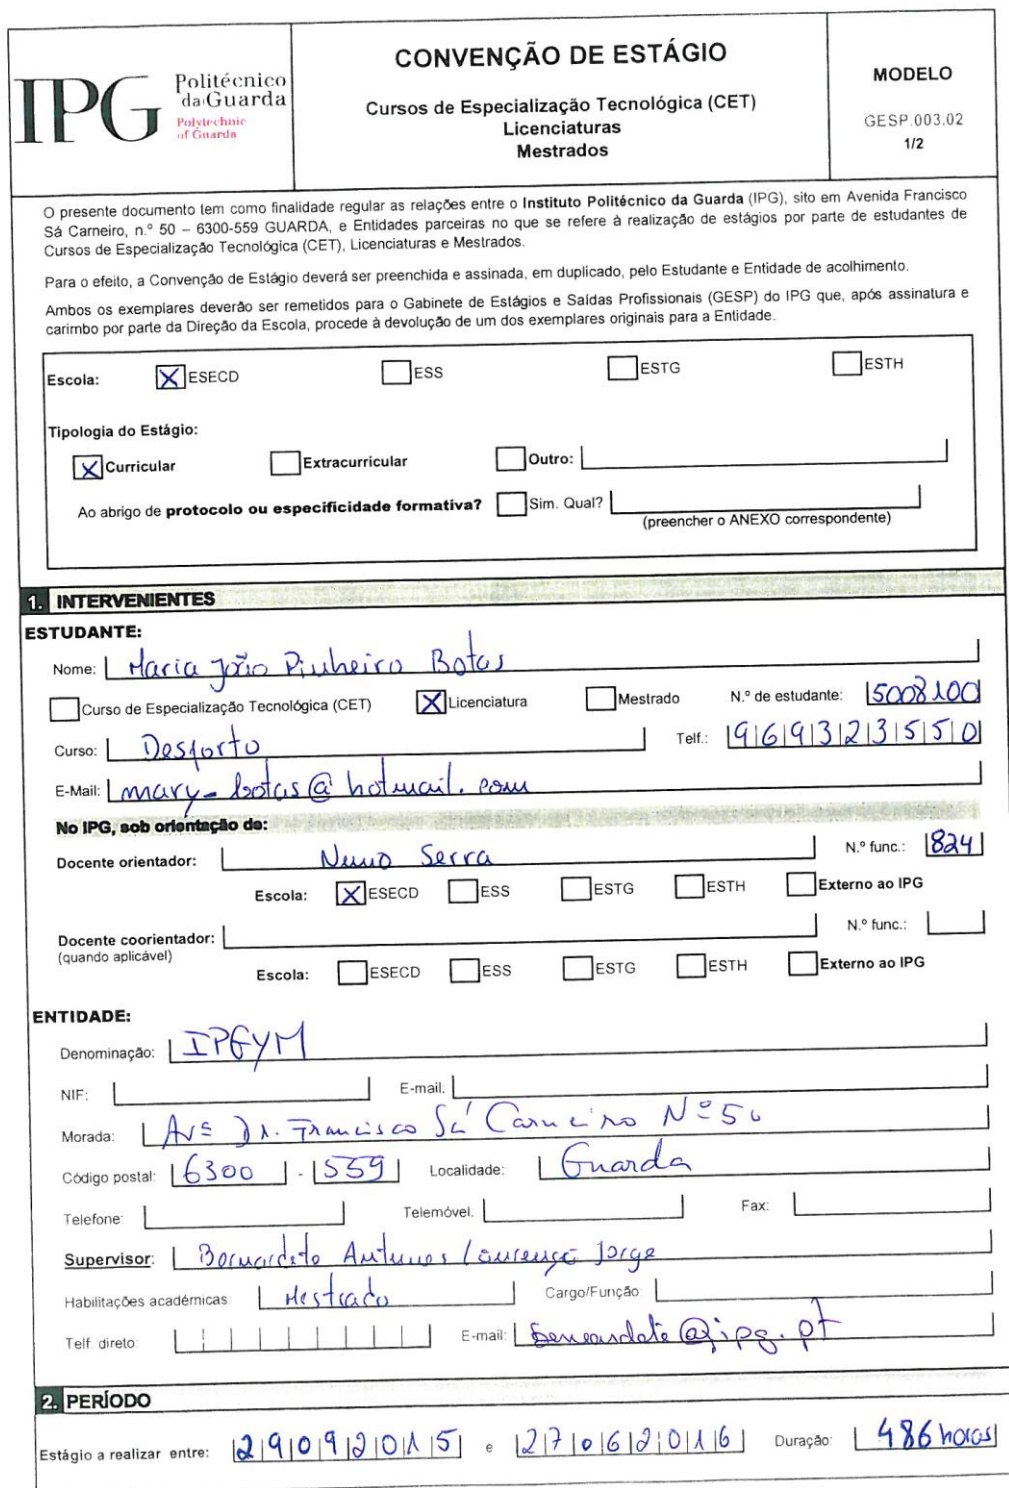 IPG Politécnico da Guarda
Polytechnic of Guarda
CONVENÇÃO DE ESTÁGIO
Cursos de Especialização Tecnológica (CET)
Licenciaturas
Mestrados
MODELO
GESP.003.02
1/2
O presente documento tem como finalidade regular as relações entre o Instituto Politécnico da Guarda (IPG), sito em Avenida Francisco
Sá Carneiro, n.º 50 – 6300-559 GUARDA, e Entidades parceiras no que se refere à realização de estágios por parte de estudantes de
Cursos de Especialização Tecnológica (CET), Licenciaturas e Mestrados.
Para o efeito, a Convenção de Estágio deverá ser preenchida e assinada, em duplicado, pelo Estudante e Entidade de acolhimento.
Ambos os exemplares deverão ser remetidos para o Gabinete de Estágios e Saídas Profissionais (GESP) do IPG que, após assinatura e
carimbo por parte da Direção da Escola, procede à devolução de um dos exemplares originais para a Entidade.
Escola: X ESECD ESS ESTG ESTH
Tipologia do Estágio:
X Curricular Extracurricular Outro:
Ao abrigo de protocolo ou especificidade formativa? Sim. Qual?
(preencher o ANEXO correspondente)
1. INTERVENIENTES
ESTUDANTE:
Nome: Maria João Pinheiro Botas
Curso de Especialização Tecnológica (CET) X Licenciatura Mestrado N.º de estudante: 5008100
Curso: Desporto Telf.: 969323550
E-Mail: mary_botas@hotmail.com
No IPG, sob orientação de:
Docente orientador: Nuno Serra N.º func.: 824
Escola: X ESECD ESS ESTG ESTH Externo ao IPG
Docente coorientador: N.º func.:
(quando aplicável)
Escola: ESECD ESS ESTG ESTH Externo ao IPG
ENTIDADE:
Denominação: IPGYM
NIF: E-mail:
Morada: Avª Dr. Francisco Sá Carneiro Nº 50
Código postal: 6300 - 559 Localidade: Guarda
Telefone: Telemóvel: Fax:
Supervisor: Antunes Lourenço Jorge
Habilitações académicas: Mestrado Cargo/Função
Telf. direto: E-mail: @ipg.pt
2. PERÍODO
Estágio a realizar entre: 29092015 e 27062016 Duração: 486 horas